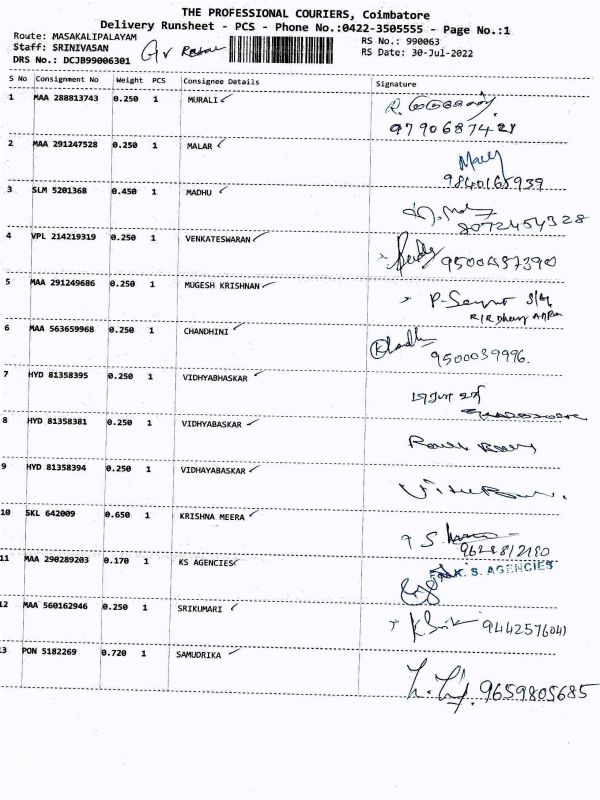 THE PROFESSIONAL COURIERS, Coimbatore
Delivery Runsheet - PCS - Phone No.:0422-3505555 - Page No.:1
Route: MASAKALIPALAYAM RS No.: 990063
Staff: SRINIVASAN RS Date: 30-Jul-2022
DRS No.: DCJB99006301
S No Consignment No Weight PCS Consignee Details Signature
1 MAA 288813743 0.250 1 MURALI
9790687421
2 MAA 291247528 0.250 1 MALAR
9840165939
3 SLM 5201368 0.450 1 MADHU
8072454328
4 VPL 214219319 0.250 1 VENKATESWARAN
5 MAA 291249686 0.250 1 MUGESH KRISHNAN
6 MAA 563659968 0.250 1 CHANDHINI
9500039996.
7 HYD 81358395 0.250 1 VIDHYABHASKAR
8 HYD 81358381 0.250 1 VIDHYABASKAR
9 HYD 81358394 0.250 1 VIDHAYABASKAR
10 SKL 642009 0.650 1 KRISHNA MEERA
11 MAA 290289203 0.170 1 KS AGENCIES
K. S. AGENCIES
12 MAA 560162946 0.250 1 SRIKUMARI
9442576041
13 PON 5182269 0.720 1 SAMUDRIKA
9659805685